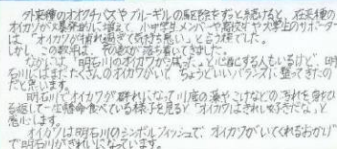 外来種のオオクチバスやブルーギルの駆除をずっと続けると、在来種の
オイカワが爆発的に増えて、小中学生メンバーや高校生や大学生のサポーター
は、「オイカワが群れ過ぎて気持ち悪い」と言う様でした。
しかし、この数年は、その数が落ち着いてきました。
なかには、「明石川のオイカワが減った」と心配する人もいるけど、明
石川にはまだたくさんのオイカワがいて、ちょうどいいバランスに整ってきたの
だと思います。
明石川でオイカワが群れになって川底の藻やこけなどの汚れを落ちひ
る返して一生懸命食べている様子を見ると「オイカワはきれい好きだな」と
感心します。
オイカワは明石川のシンボルフィッシュで、オイカワがいてくれるおかげ
で明石川がきれいになっています。